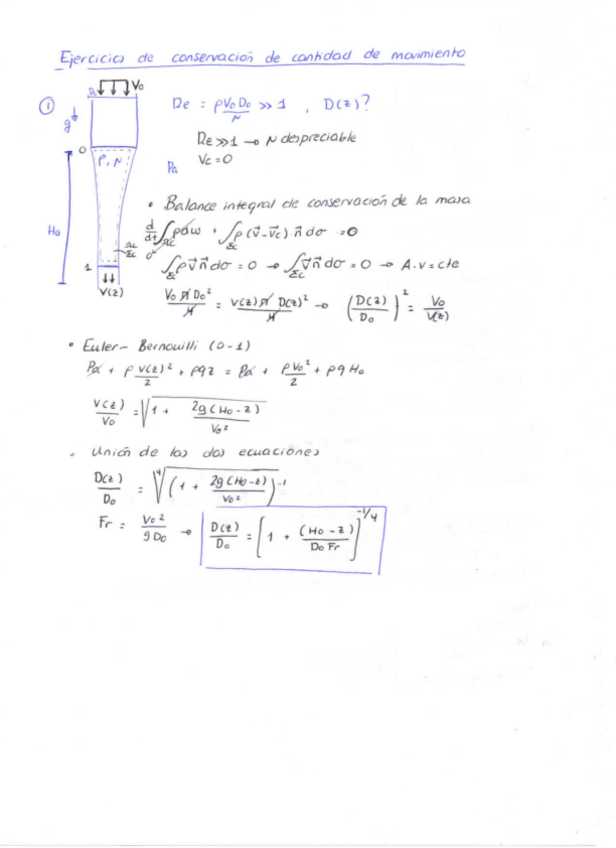 Ejercicios de conservación de cantidad de movimiento
① D₀ V₀ Re = ρV₀D₀/μ >> 1 , D(z)?
g Re >> 1 → μ despreciable
0 ρ, μ Pa Vc = 0
• Balance integral de conservación de la masa
H₀ d/dt ∫Ωc ρdω + ∫Σc ρ(v⃗-v⃗c)·n⃗ dσ = 0
Ωc Σc 0
1 ∫Σc ρv⃗n⃗dσ = 0 → ∫Σc v⃗n⃗dσ = 0 → A·v = cte
V(z) V₀ π D₀²/4 = V(z) π D(z)²/4 → (D(z)/D₀)² = V₀/V(z)
• Euler - Bernouilli (0-1)
Pa + ρ V(z)²/2 + ρgz = Pa + ρV₀²/2 + ρgH₀
V(z)/V₀ = √(1 + 2g(H₀-z)/V₀²)
• Unión de las dos ecuaciones
D(z)/D₀ = ⁴√((1 + 2g(H₀-z)/V₀²)⁻¹)
Fr = V₀²/gD₀ → D(z)/D₀ = [1 + (H₀-z)/D₀Fr]^-1/4